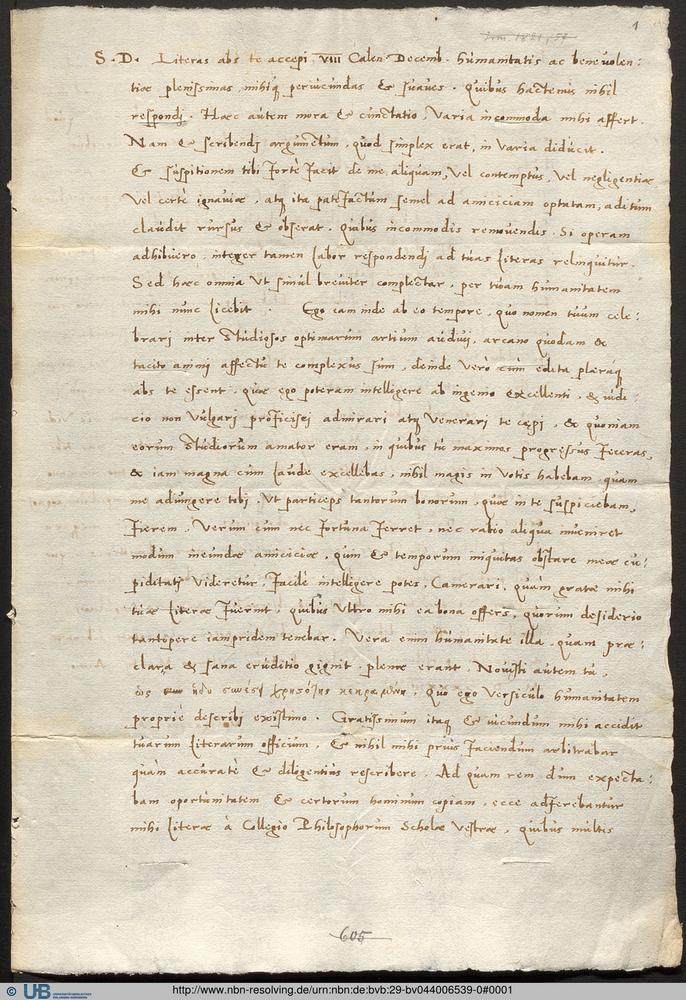 1
S. D. Literas abs te accepi VIII Calen Decemb. humanitatis ac beneuolen:
tiæ plenissimas, mihiq periucundas & suaues. Quibus hactenus nihil
respondj. Hæc autem mora & cunctatio, Varia incommoda mihi affert.
Nam & scribendj argumentum, quod simplex erat, in varia diducit.
Et suspitionem tibi fortè facit de me, aliquam, vel contemptus, vel negligentiæ
vel certè ignauiæ, atq ita patefactum semel ad amiciciam optatam, aditum
claudit rursus & obserat. Quibus incommodis remouendis. Si operam
adhibuero, integer tamen labor respondendj ad tuas literas relinquitur.
Sed hæc omnia vt simul breuiter complectar, per tuam humanitatem
mihi nunc licebit. Ego eam inde ab eo tempore, quo nomen tuum cele:
brari inter studiosos optimarum artium audiui, arcano quodam &
tacito animi affectu te complexus sum, deinde verò cùm edita pleraq
abs te essent, quæ ego poteram intelligere ab ingenio excellenti, & iudi
cio non vulgari proficiscj admirari atq venerari te cæpi, & quoniam
eorum studiorum amator eram, in quibus tu maximos progressus feceras,
& iam magna cum laude excellebas, nihil magis in votis habebam quam
me adiungere tibj, vt particeps tantorum bonorum, quæ in te suspiciebam,
fierem. Verum cum nec fortuna ferret, nec ratio aliqua muniret
modum ineundæ amiciciæ, quin & temporum iniquitas obstare meæ cu:
piditatj videretur, facilè intelligere potes, Camerari, quàm gratæ mihi
tuæ literæ fuerint, quibus vltro mihi ea bona offers, quorum desiderio
tantopere iampridem tenebar. Vera enim humanitate illa, quam præ:
clara & sana eruditio gignit, plenæ erant. Nouisti autem tu,
ὡς ἡδὺ συνέσει χρηστότης κεκραμένη, quo ego versiculo humanitatem
propriè describj existimo. Gratissimum itaq & iucundum mihi accidit
tuarum literarum officium, & nihil mihi prius faciendum arbitrabar
quàm accuratè & diligentius rescribere. Ad quam rem dum expecta:
bam oportunitatem & certorum hominum copiam, ecce adferebantur
mihi literæ à Collegio Philosophorum Scholæ Vestræ, quibus multis
605
© UB
http://www.nbn-resolving.de/urn:nbn:de:bvb:29-bv044006539-0#0001